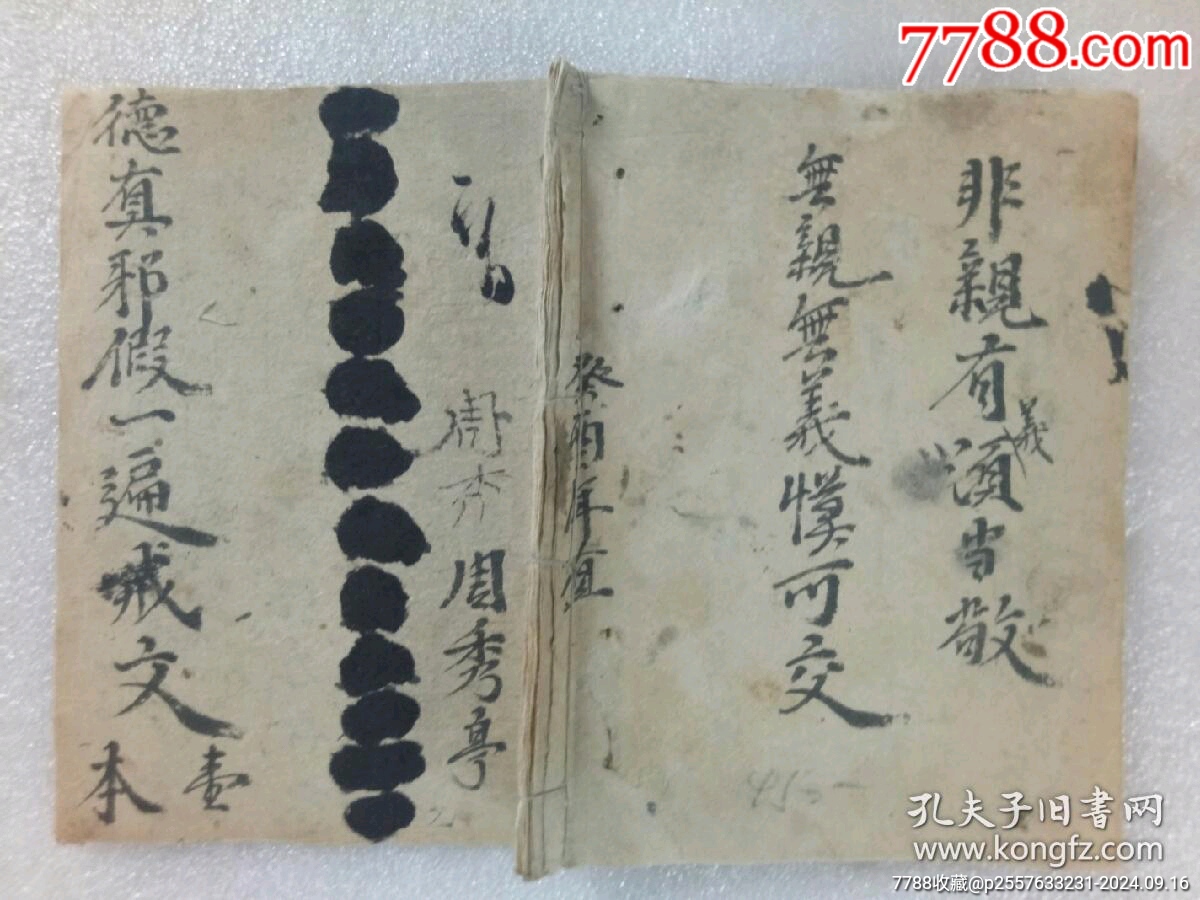 7788.com
非親有義須当敬
無親無義慢可交
癸酉年置
周秀亭
周秀
德真邪假一遍戒文
壹本
孔夫子旧书网
www.kongfz.com
7788收藏@p2557633231-2024.09.16